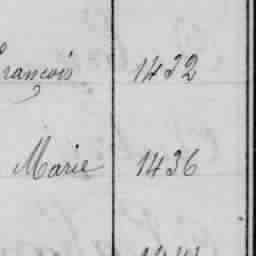 François 1432
Marie 1436